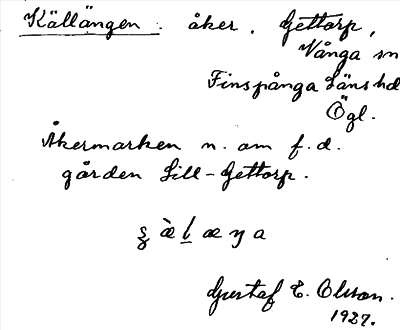 Källängen. åker. Gettorp,
Vånga sn
Finspånga Länshd
Ögl.
Åkermarken n. om f.d.
gården Lill-Gettorp.
Gustaf E. Olsson.
1927.